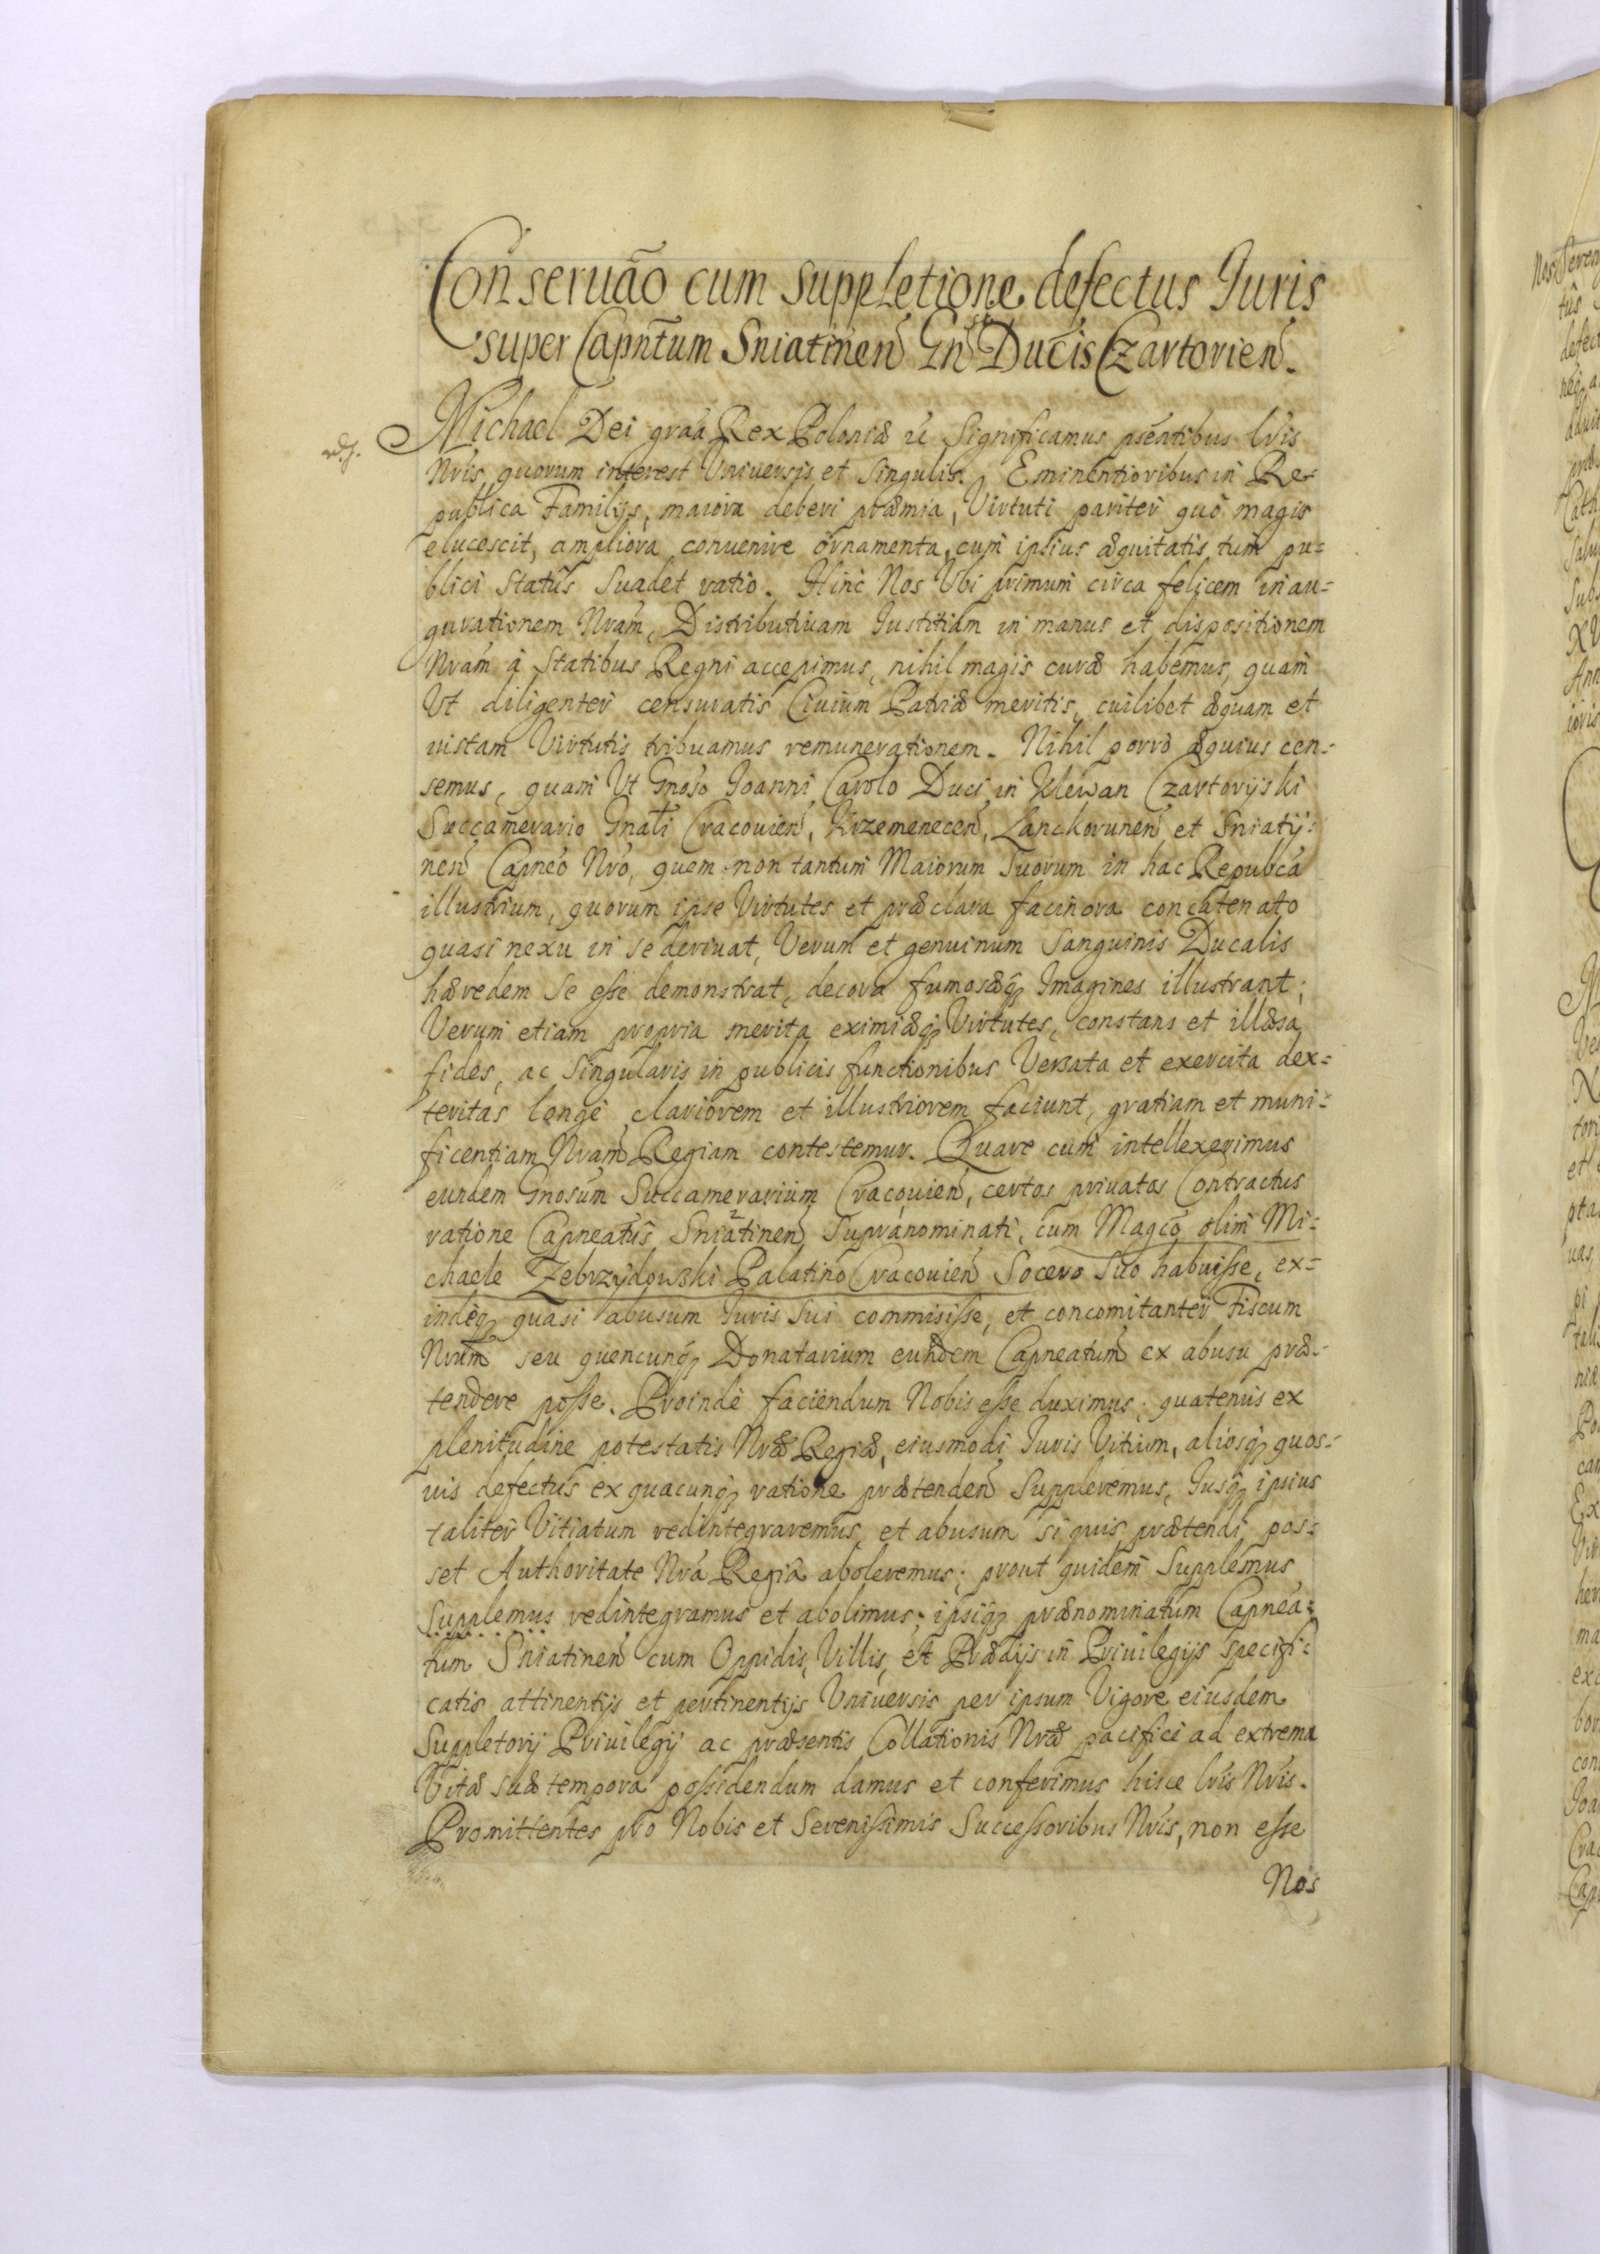 Conseruão cum suppletione defectus Iuris
super Capntum Sniatinen Gn Ducis Czartorien.
Michael Dei graã Rex Poloniæ Significamus pseñtibus lris
Nris quorum interest Vniuersis et Singulis. Eminentioribus in Re-
publica Familijs, maiora deberi præmia, Virtuti pariter quò magis
elucescit, ampliora conuenire ornamenta, cum ipsius æquitatis tum pu-
blici Status Suadet ratio. Hinc Nos Vbi primum circa felicem inau-
gurationem Nram, Distributiuam Iustitiam in manus et dispositionem
Nram à Statibus Regni accepimus, nihil magis curæ habemus, quam
Vt diligenter censuratis Ciuium Patriæ meritis, cuilibet æquam et
iustam Virtutis tribuamus remunerationem. Nihil porrò æquius cen-
semus, quam Vt Gnoso Ioanni Carolo Duci in Klewan Czartoryiski
Succamerario Gnali Cracouien, Krzemenecen, Lanckorunen et Sniatij-
nen Capneo Nro, quem non tantum Maiorum Suorum in hac Republcã
illustrium, quorum ipse Virtutes et præclara facinora concatenato
quasi nexu in se deriuat, Verum et genuinum Sanguinis Ducalis
hæredem Se esse demonstrat, decora fumosæq Imagines illustrant;
Verum etiam propria merita eximiæq Virtutes, constans et illæsa
fides, ac Singularis in publicis functionibus Versata et exercita dex-
teritas longè clariorem et illustriorem faciunt, gratiam et muni-
ficentiam Nram Regiam contestemur. Quare cum intellexerimus
eundem Gnosum Succamerarium Cracouien, certos priuatos Contractus
ratione Capneatus Sniatinen Supranominati, cum Magco olim Mi-
chaele Zebrzydowski Palatino Cracouien Socero Suo habuisse, ex-
indeq quasi abusum Iuris Sui commisisse, et concomitanter Fiscum
Nrum seu quencunq Donatarium eundem Capneatum ex abusu præ-
tendere posse. Proindè faciendum Nobis esse duximus; quatenus ex
plenitudine potestatis Nræ Regiæ, eiusmodi Iuris Vitium, aliosq quos-
uis defectus ex quacunq ratione prætenden Suppleremus, Iusq ipsius
taliter Vitiatum redintegraremus, et abusum siquis prætendi pos-
set Authoritate Nra Regia aboleremus; prout quidem Supplemus
Supplemus redintegramus et abolimus; ipsiq prænominatum Capnea-
tum Sniatinen cum Oppidis, Villis, et Prædijs in Priuilegijs specifi-
catis attinentijs et pertinentijs Vniuersis per ipsum Vigore eiusdem
Suppletorij Priuilegij ac præsentis Collationis Nræ pacificè ad extrema
Vitæ Suæ tempora possidendum damus et conferimus hisce lris Nris.
Promittentes pro Nobis et Serenissimis Successoribus Nris, non esse
Nos